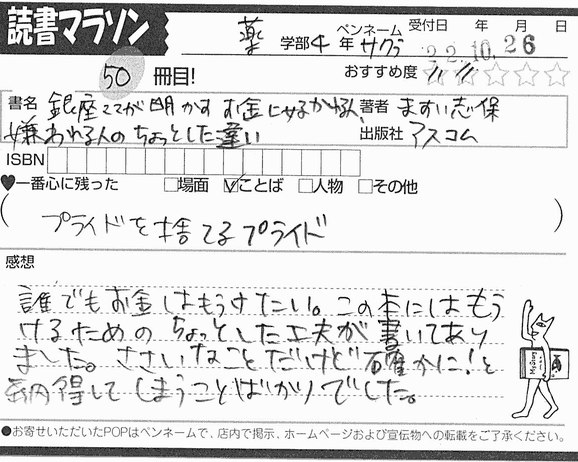 読書マラソン
薬 学部 4 年 ペンネーム サクラ 受付日 年 月 日
22.10.26
50 冊目! おすすめ度 ☆☆☆☆☆
書名 銀座ママが明かす お金に好かれる人、 著者 ますい志保
嫌われる人のちょっとした違い 出版社 アスコム
ISBN
♥一番心に残った □場面 ☑ことば □人物 □その他
( プライドを捨てるプライド )
感想
誰でもお金はもうけたい。この本にはもう
けるためのちょっとした工夫が書いてあり
ました。ささいなことだけど「確かに!」と
納得してしまうことばかりでした。
●お寄せいただいたPOPはペンネームで、店内で掲示、ホームページおよび宣伝物への転載をご了承ください。